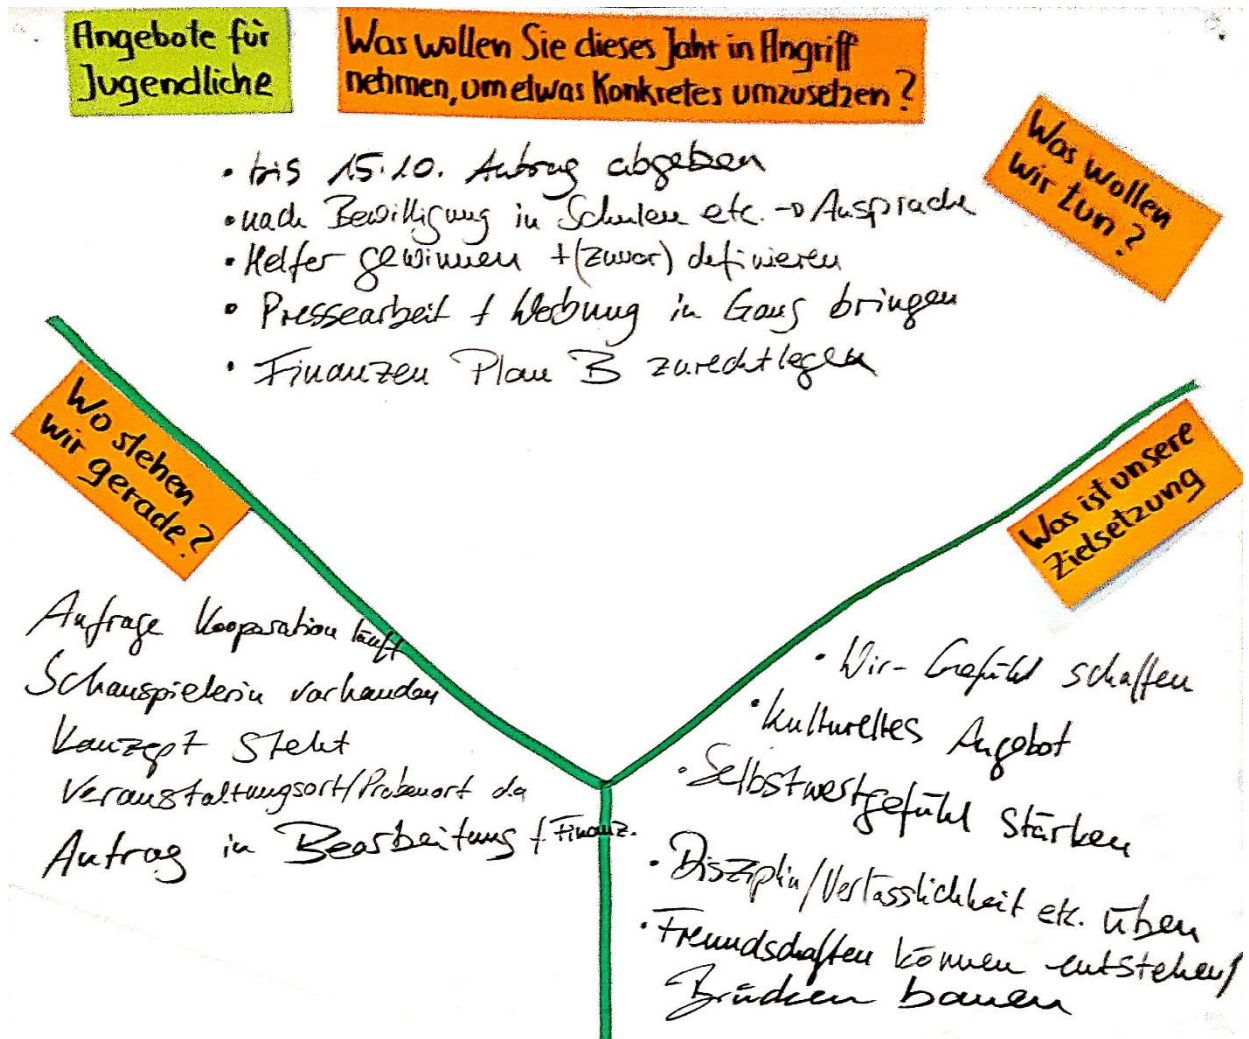 Angebote für
Jugendliche
Was wollen Sie dieses Jahr in Angriff
nehmen, um etwas Konkretes umzusetzen?
Was wollen
wir tun?
• bis 15.10. Antrag abgeben
• nach Bewilligung in Schulen etc. → Ansprache
• Helfer gewinnen + (zuvor) definieren
• Pressearbeit + Werbung in Gang bringen
• Finanzen Plan B zurechtlegen
Wo stehen
wir gerade?
Anfrage Kooperation läuft
Schauspielerin vorhanden
Konzept steht
Veranstaltungsort/Probenort da
Antrag in Bearbeitung + Finanz.
Was ist unsere
Zielsetzung
• Wir-Gefühl schaffen
• kulturelles Angebot
• Selbstwertgefühl stärken
• Disziplin/Verlässlichkeit etc. üben
• Freundschaften können entstehen/
Brücken bauen